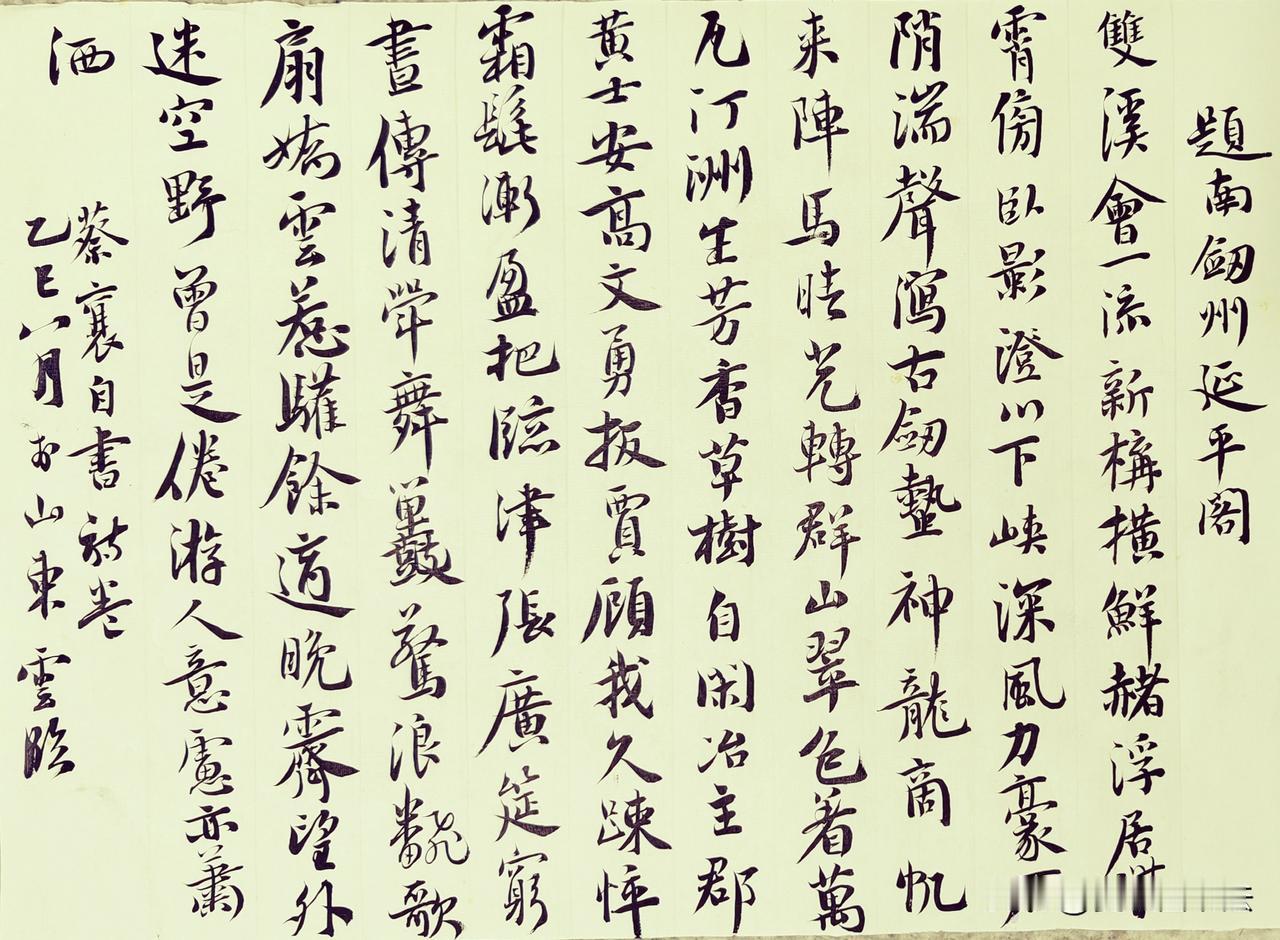 題南劒州延平閣
雙溪會一流新構橫鮮赭浮居
霄傍臥影澄川下峽深風力豪
陗湍聲瀉古劒蟄神龍商帆
來陣馬晴光轉群山翠色着萬
瓦汀洲生芳香草樹自閑冶主郡
黃士安高文勇扳賈顧我久踈悴
霜髭漸盈把臨津張廣筵窮
晝傳清斝舞鼉驚浪飜歌
扇嬌雲惹驩餘適晚霽望外
迷空野曾是倦游人意慮亦蕭
洒
蔡襄自書詩卷
乙巳八月於山東雲臨